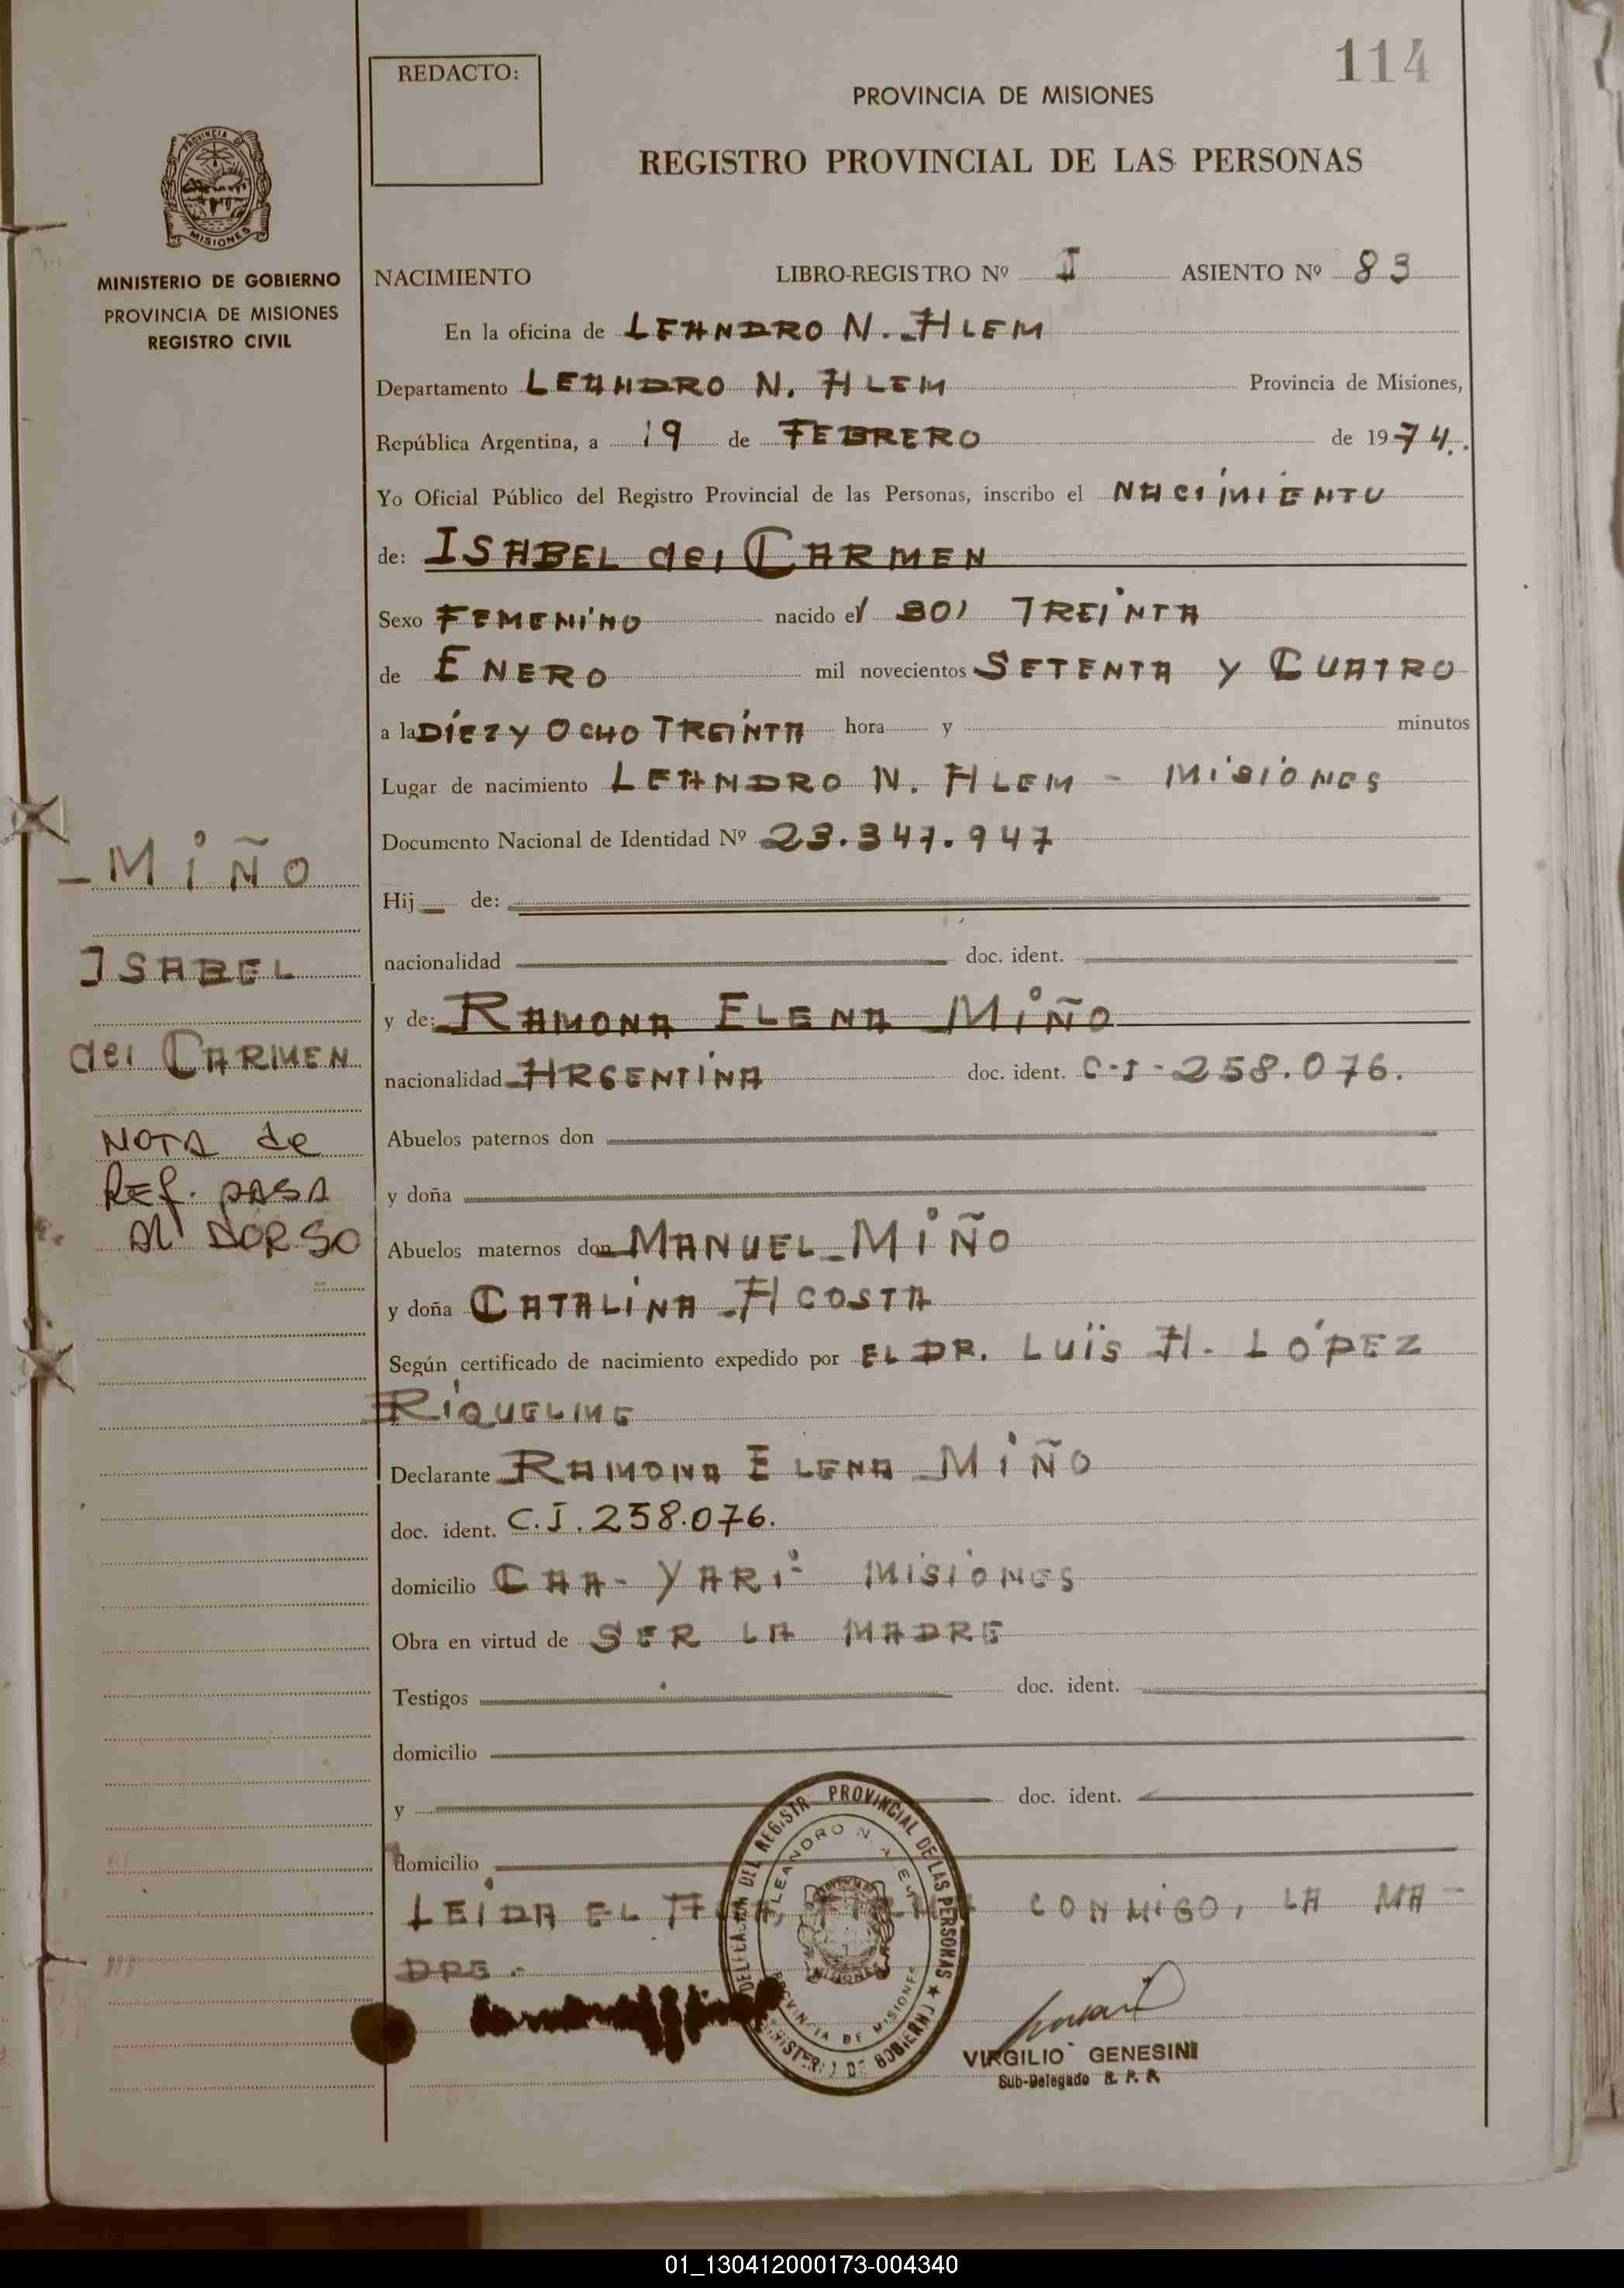 114
REDACTO:
PROVINCIA DE MISIONES
REGISTRO PROVINCIAL DE LAS PERSONAS
PROVINCIA DE
MISIONES
MINISTERIO DE GOBIERNO
PROVINCIA DE MISIONES
REGISTRO CIVIL
NACIMIENTO LIBRO-REGISTRO Nº I ASIENTO Nº 83
En la oficina de LEANDRO N. ALEM
Departamento LEANDRO N. ALEM Provincia de Misiones,
República Argentina, a 19 de FEBRERO de 1974.
Yo Oficial Público del Registro Provincial de las Personas, inscribo el NACIMIENTO
de: ISABEL del CARMEN
Sexo FEMENINO nacido el 30) TREINTA
de ENERO mil novecientos SETENTA Y CUATRO
a la DIEZ Y OCHO TREINTA hora y minutos
Lugar de nacimiento LEANDRO N. ALEM - MISIONES
Documento Nacional de Identidad Nº 23.347.947
Hij de:
nacionalidad doc. ident.
y de: RAMONA ELENA MIÑO
nacionalidad ARGENTINA doc. ident. C-I-258.076.
Abuelos paternos don
y doña
Abuelos maternos don MANUEL MIÑO
y doña CATALINA ACOSTA
Según certificado de nacimiento expedido por EL DR. LUIS A. LÓPEZ
RIQUELME
Declarante RAMONA ELENA MIÑO
doc. ident. C.I. 258.076.
domicilio CAA-YARI- MISIONES
Obra en virtud de SER LA MADRE
Testigos doc. ident.
domicilio
y doc. ident.
domicilio
LEIDA EL ACTA, FIRMA CONMIGO, LA MA-
DRE.-
MIÑO
ISABEL
del CARMEN
NOTA de
REF. PASA
Al DORSO
DELEGACION DEL REGISTR PROVINCIAL DE LAS PERSONAS ★ MINISTERIO DE GOBIERNO
LEANDRO N. ALEM
PROVINCIA DE MISIONES
MISIONES
VIRGILIO GENESINI
Sub-Delegado R. P. P.
01_130412000173-004340